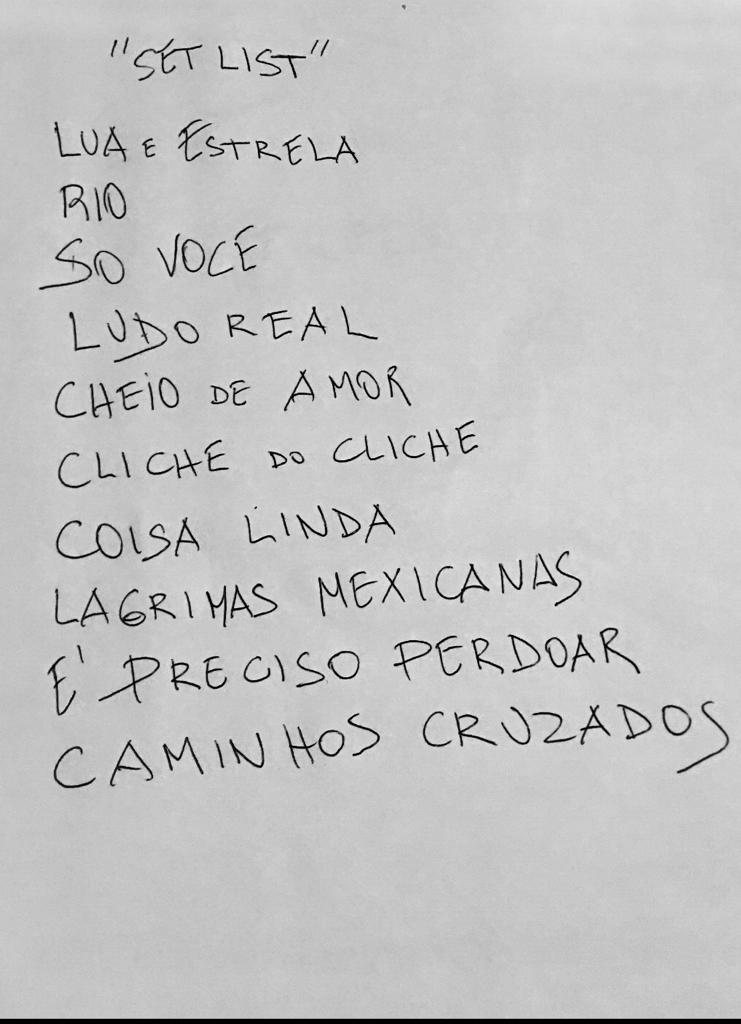 "SET LIST"
LUA E ESTRELA
RIO
SO VOCÊ
LUDO REAL
CHEIO DE AMOR
CLICHE DO CLICHE
COISA LINDA
LAGRIMAS MEXICANAS
E' PRECISO PERDOAR
CAMINHOS CRUZADOS